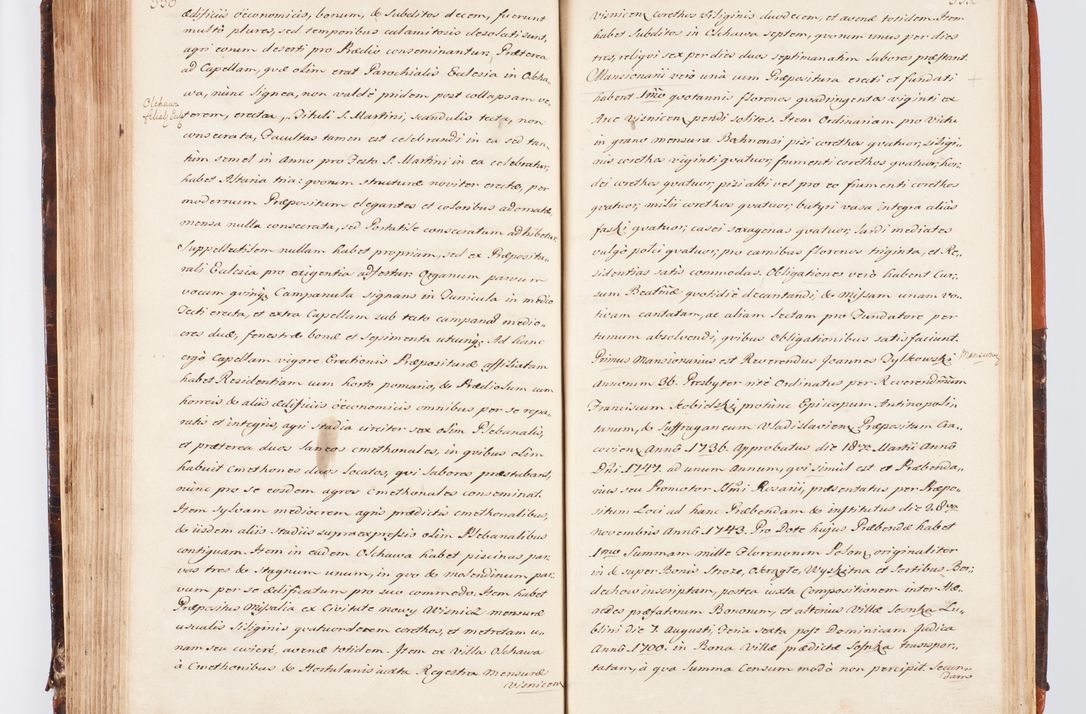 ædificijs œconomicis, bonum, & subditos decem, fuerunt
multò plures, sed temporibus calamitosis desolati sunt,
agri eorum deserti pro Prædio conseminantur. Præterea
ad Capellam, quæ olim erat Parochialis Ecclesia in Olcha-
wa, nunc lignea, non valdè pridem post collapsam ve-
Olchawa
filialis
terem, erecta, Tituli S. Martini, scandulis tecta, non
consecrata, Facultas tamen est celebrandi in ea sed tan-
tùm semel in Anno pro Festo S. Martini in ea celebratur,
habet Altaria tria: quorum structuræ noviter erectæ, per
modernum Præpositum elegantes et coloribus adornatæ,
mensa nulla consecrata, sed Portatile consecratum adhibetur.
Suppellectilem nullam habet propriam, sed ex Præpositu-
rali Ecclesia pro exigentia adfertur. Organum parvum
vocum quinq; Campanula signans in Turricula in medio
Tecti erecta, et extra Capellam sub tecto campanæ medio-
cres duæ, fenestræ bonæ et sepimenta utcunq; Ad hanc
ergò Capellam vigore Erectionis Præposituræ affiliatam
habet Residentiam cum horto pomario, & Prædiolum cum
horreis & aliis ædificiis œconomicis omnibus per se repa-
ratis et integris, agri stadia circiter sex olim Plebanalis,
et præterea duos laneos cmethonales, in quibus olim
habuit Cmethones duos locatos, qui labores præstabant,
nunc pro se eosdem agros cmethonales conseminat.
Item sylvam mediocrem agris prædictis cmethonalibus,
& iisdem aliis stadiis supraexpressis olim Plebanalibus
contiguam. Item in eadem Olchawa habet piscinas par-
vas tres & stagnum unum, in quo & molendinum par-
vum per se ædificatum pro suo commodo. Item habet
Præpositus Missalia ex Civitate nowy Wisnicz mensuræ
usualis siliginis quatuordecem corethos, et metretam u-
nam seu cwierć, avenæ totidem. Item ex Villa Olchawa
à Cmethonibus & Hortulanis iuxta Regestra mensuræ
visnicen
visnicen corethos siliginis duodecem, et avenæ totidem. Item
habet Subditos in Olchawa septem, quorum unus per dies
tres, reliqui sex per dies duos septimanatim labores præstant.
Mansionarii verò unà cum Præpositura erecti et fundati
habent 1mo quotannis florenos quadringentos viginti ex
Arce visnicen pendi solitos. Item Ordinariam pro victu
in grano mensura Bochnensi pizi corethos quatuor, siligi-
nis corethos viginti quatuor, frumenti corethos quatuor, hor-
dei corethos quatuor, pizi albi vel pro eo frumenti corethos
quatuor, milii corethos quatuor, butyri vasa integra alias
faski quatuor, casei sexagenas quatuor, lardi medietates
vulgò polci quatuor, pro carnibus florenos triginta, et Re-
sidentias satis commodas. Obligationes verò habent Cur-
sum Beatmæ quotidie decantandi, & Missam unam vo-
tivam cantatam, ac aliam lectam pro Fundatore per
turnum absolvendi, quibus obligationibus satisfaciunt.
Primus Mansionarius est Reverendus Joannes Dylkowski
annorum 36. Presbyter ritè Ordinatus per Reverendmum
Franciscum Kobielski protunc Episcopum Antinopoli-
tanum, & Suffraganeum Vladislavien Præpositum Cra-
covien Anno 1736. Approbatus die 18va Martii Anno
Dni 1747. ad unum Annum, qui simul est et Præbenda-
rius seu Promotor SSmi Rosarii, præsentatus per Præpo-
situm Loci ad hanc Præbendam & institutus die 28va
novembris Anno 1743. Pro Dote hujus Præbendæ habet
1mo Summam mille Florenorum Polon originaliter
in & super Bonis Stroze, Okragle, Wyskitna et Sortibus Bor-
dechow inscriptam, postea iuxta Compositionem inter Hæ-
redes præfatorum Bonorum, et alterius Villæ Sosnka Lu-
blini die 7. Augusti, Feria sexta post Dominicam Judica
Anno 1700. in Bona Villæ prædictæ Sosnka transpor-
tatam, à qua Summa Censum modò non percipit. Secun-
dam